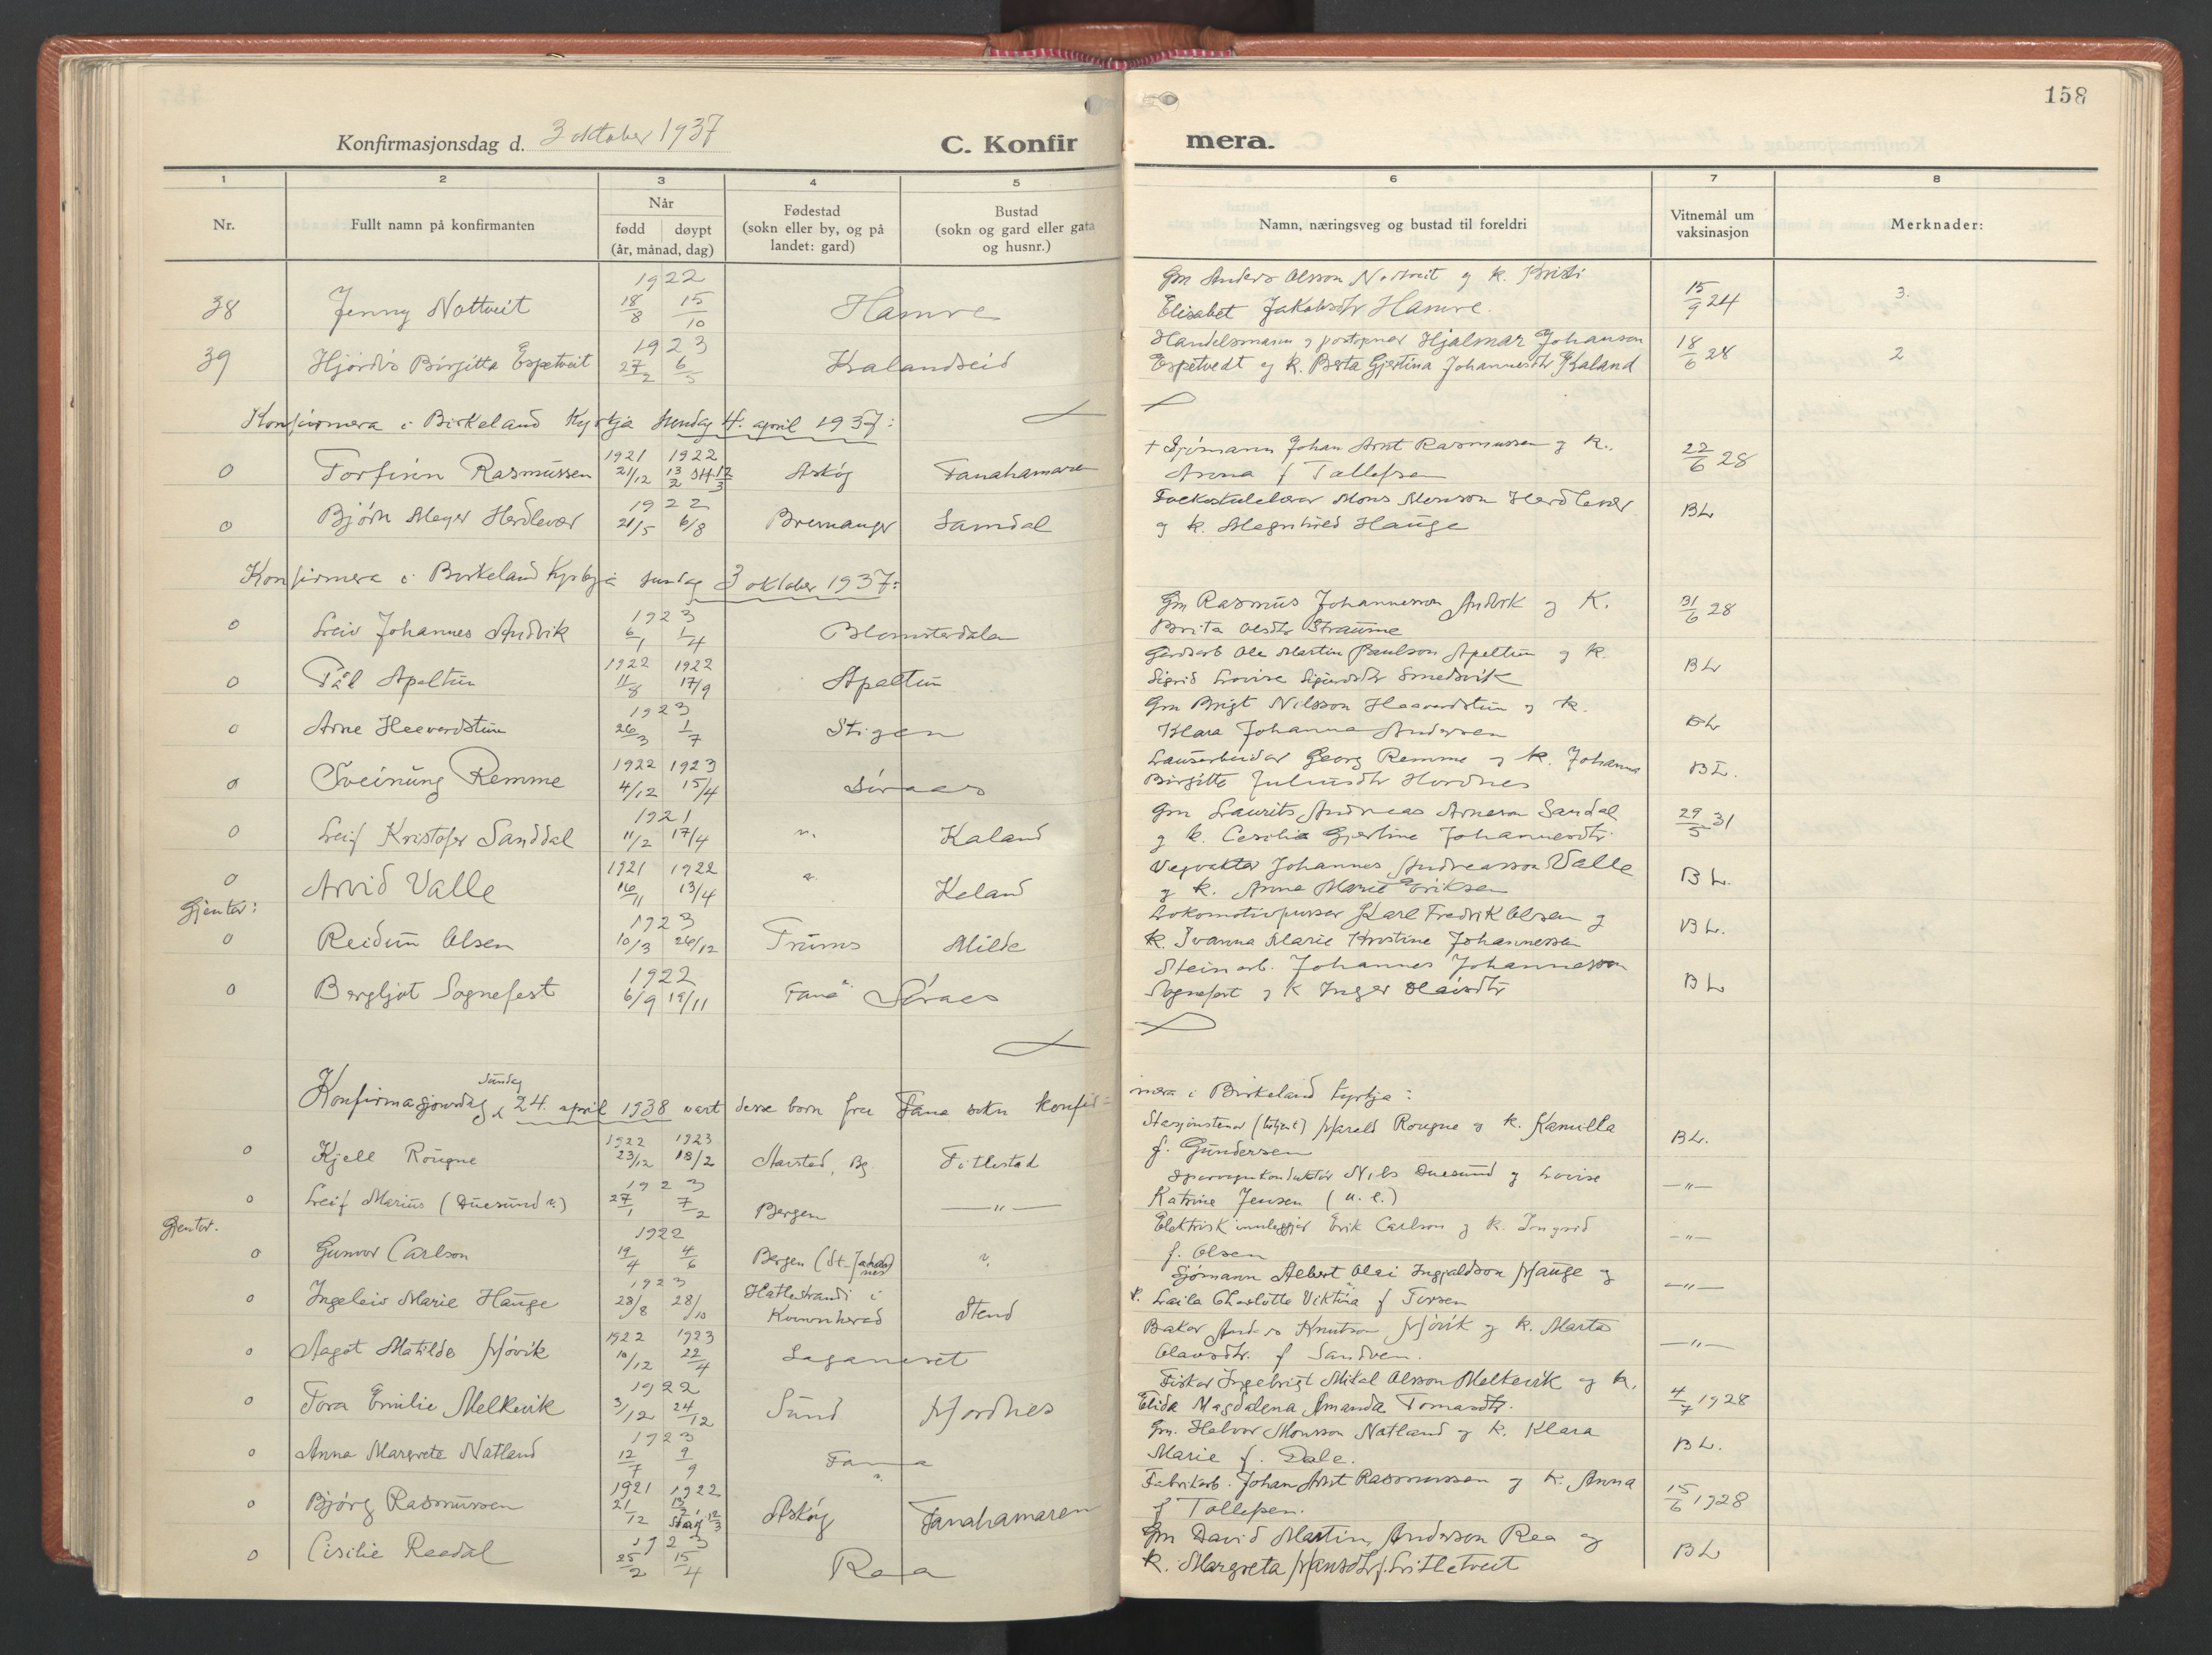 158
Konfirmasjonsdag d. 3 oktober 1937
C. Konfirmera.
1 2 3 4 5 6 7 8
Nr.
Fullt namn på konfirmanten
Når
fødd døypt
(år, månad, dag)
Fødestad
(sokn eller by, og på
landet: gard)
Bustad
(sokn og gard eller gata
og husnr.)
Namn, næringsveg og bustad til foreldri
Vitnemål um
vaksinasjon
Merknader:
1922
38 Jenny Nottveit 18/8 15/10 Hamre Gm Anders Olsson Nottveit og k. Kristi
Elisabet Jakobsdtr Hamre. 15/9 24 3.
1923
39 Hjørdis Birgitta Espetveit 27/2 6/5 Kalandseid Handelsmann og postopnar Hjalmar Johanson
Espetvedt og k. Berta Gjertina Johannesdtr Kaland 18/6 28 2
Konfirmera i Birkeland Kyrkja sundag 4. april 1937:
1921 1922
o Torfinn Rasmussen 21/12 13/2 St 12/3 Askøy Fanahamaren + Sjømann Johan Arnt Rasmussen og k.
Anna f Tollefsen 22/6 28
1922
o Bjørn Meyer Herdlevær 21/5 6/8 Bremanger Samdal Folkeskulelærar Mons Monsson Herdlevær
og k. Magnhild Hauge BL
Konfirmera i Birkeland Kyrkja sundag 3 oktober 1937:
1923
o Leiv Johannes Andvik 6/1 1/4 Blomsterdalen Gm Rasmus Johannesson Andvik og K.
Brita Olsdtr Straume 31/6 28
1922 1922
o Pål Apeltun 11/8 17/9 Apeltun Gardsarb Ole Martin Paulson Apeltun og k.
Sigrid Lovise Sigurdsdtr Smedsvik BL
1923
o Arne Haavardstun 26/3 1/7 Stigen Gm Brigt Nilsson Haavardstun og k.
Klara Johanna Andersen BL
1922 1923
o Sveinung Remme 4/12 15/4 Søraas Lausarbeidar Georg Remme og k. Johanna
Birgitte Juliusdtr Hordnes BL.
1921
o Leif Kristofer Sanddal 11/2 17/4 " Kaland Gm Laurits Andreas Arneson Sandal
og k. Cecilia Gjertine Johannesdtr. 29/5 31
1921 1922
o Arvid Valle 16/11 13/4 " Kaland Vegvaktar Johannes Andreasson Valle
og k. Anna Marie Eriksen BL.
Gjentor:
1923
o Reidun Olsen 10/3 26/12 Milde Lokomotivpusser Karl Fredrik Olsen og
k. Ivanna Marie Kristine Johannessen BL.
1922
o Bergljot Sognefest 6/9 19/11 Fana Søraas Steinarb. Johannes Johannesson
Sognefest og K Inger Olaisdtr BL
Konfirmasjonsdag sundag d 24. april 1938 vart desse born fra Fana sokn konfir=
mera i Birkeland kyrkja:
1922 1923
o Kjell Rougne 23/12 18/2 Aarstad, Bg. Titlestad Stasjonstenar Harald Rougne og k. Kamilla
f. Gundersen BL.
1923
o Leif Marius (Duesund) 27/1 7/2 Bergen —"— Sporvognkonduktør Nils Duesund og Lovise
Katrine Jensen (u. e.) —"—
Gjentor.
1922
o Gunvor Carlson 19/4 4/6 Bergen (St. Johannes) " Elektrisk innleggjer Erik Carlson og k. Ingrid
f. Olsen —"—
1923
o Ingeleiv Marie Hauge 28/8 28/10 Hatlestrand i
Kvinnherad Stend Sjømann Albert Olai Ingjaldson Hauge og
k. Laila Charlotte Viktoria f Torsen —"—
1922 1923
o Aagot Matilde Høvik 10/12 22/4 Laganeset Bakar Anders Knutson Høvik og k. Marta
Olavsdtr. f Sandven. —"—
1922
o Tora Emilie Melkevik 3/12 24/12 Sund Hordnes Fiskar Ingebrigt Mikal Olsson Melkevik og k.
Elida Magdalena Amanda Tomasdtr. 4/7 1928
1923
o Anna Margrete Natland 12/7 9/9 Fana Gm. Halvor Monsson Natland og k. Klara
Marie f. Dale. BL.
1921 1922
o Bjørg Rasmussen 21/12 13/2 Stad 12/3 Askøy Fanahamaren Fabrikarb. Johan Arnt Rasmussen og k. Anna
f Tollefsen. 15/6 1928
1923
o Cisilie Raadal 25/2 15/4 Raa Gm David Martin Anderson Raa og
k. Margreta Hansdtr f. Litletveit BL